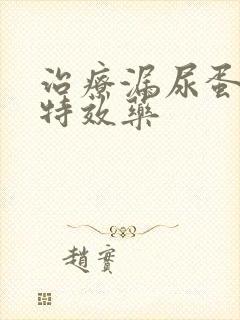 治療漏尿蛋
特效藥
趙實